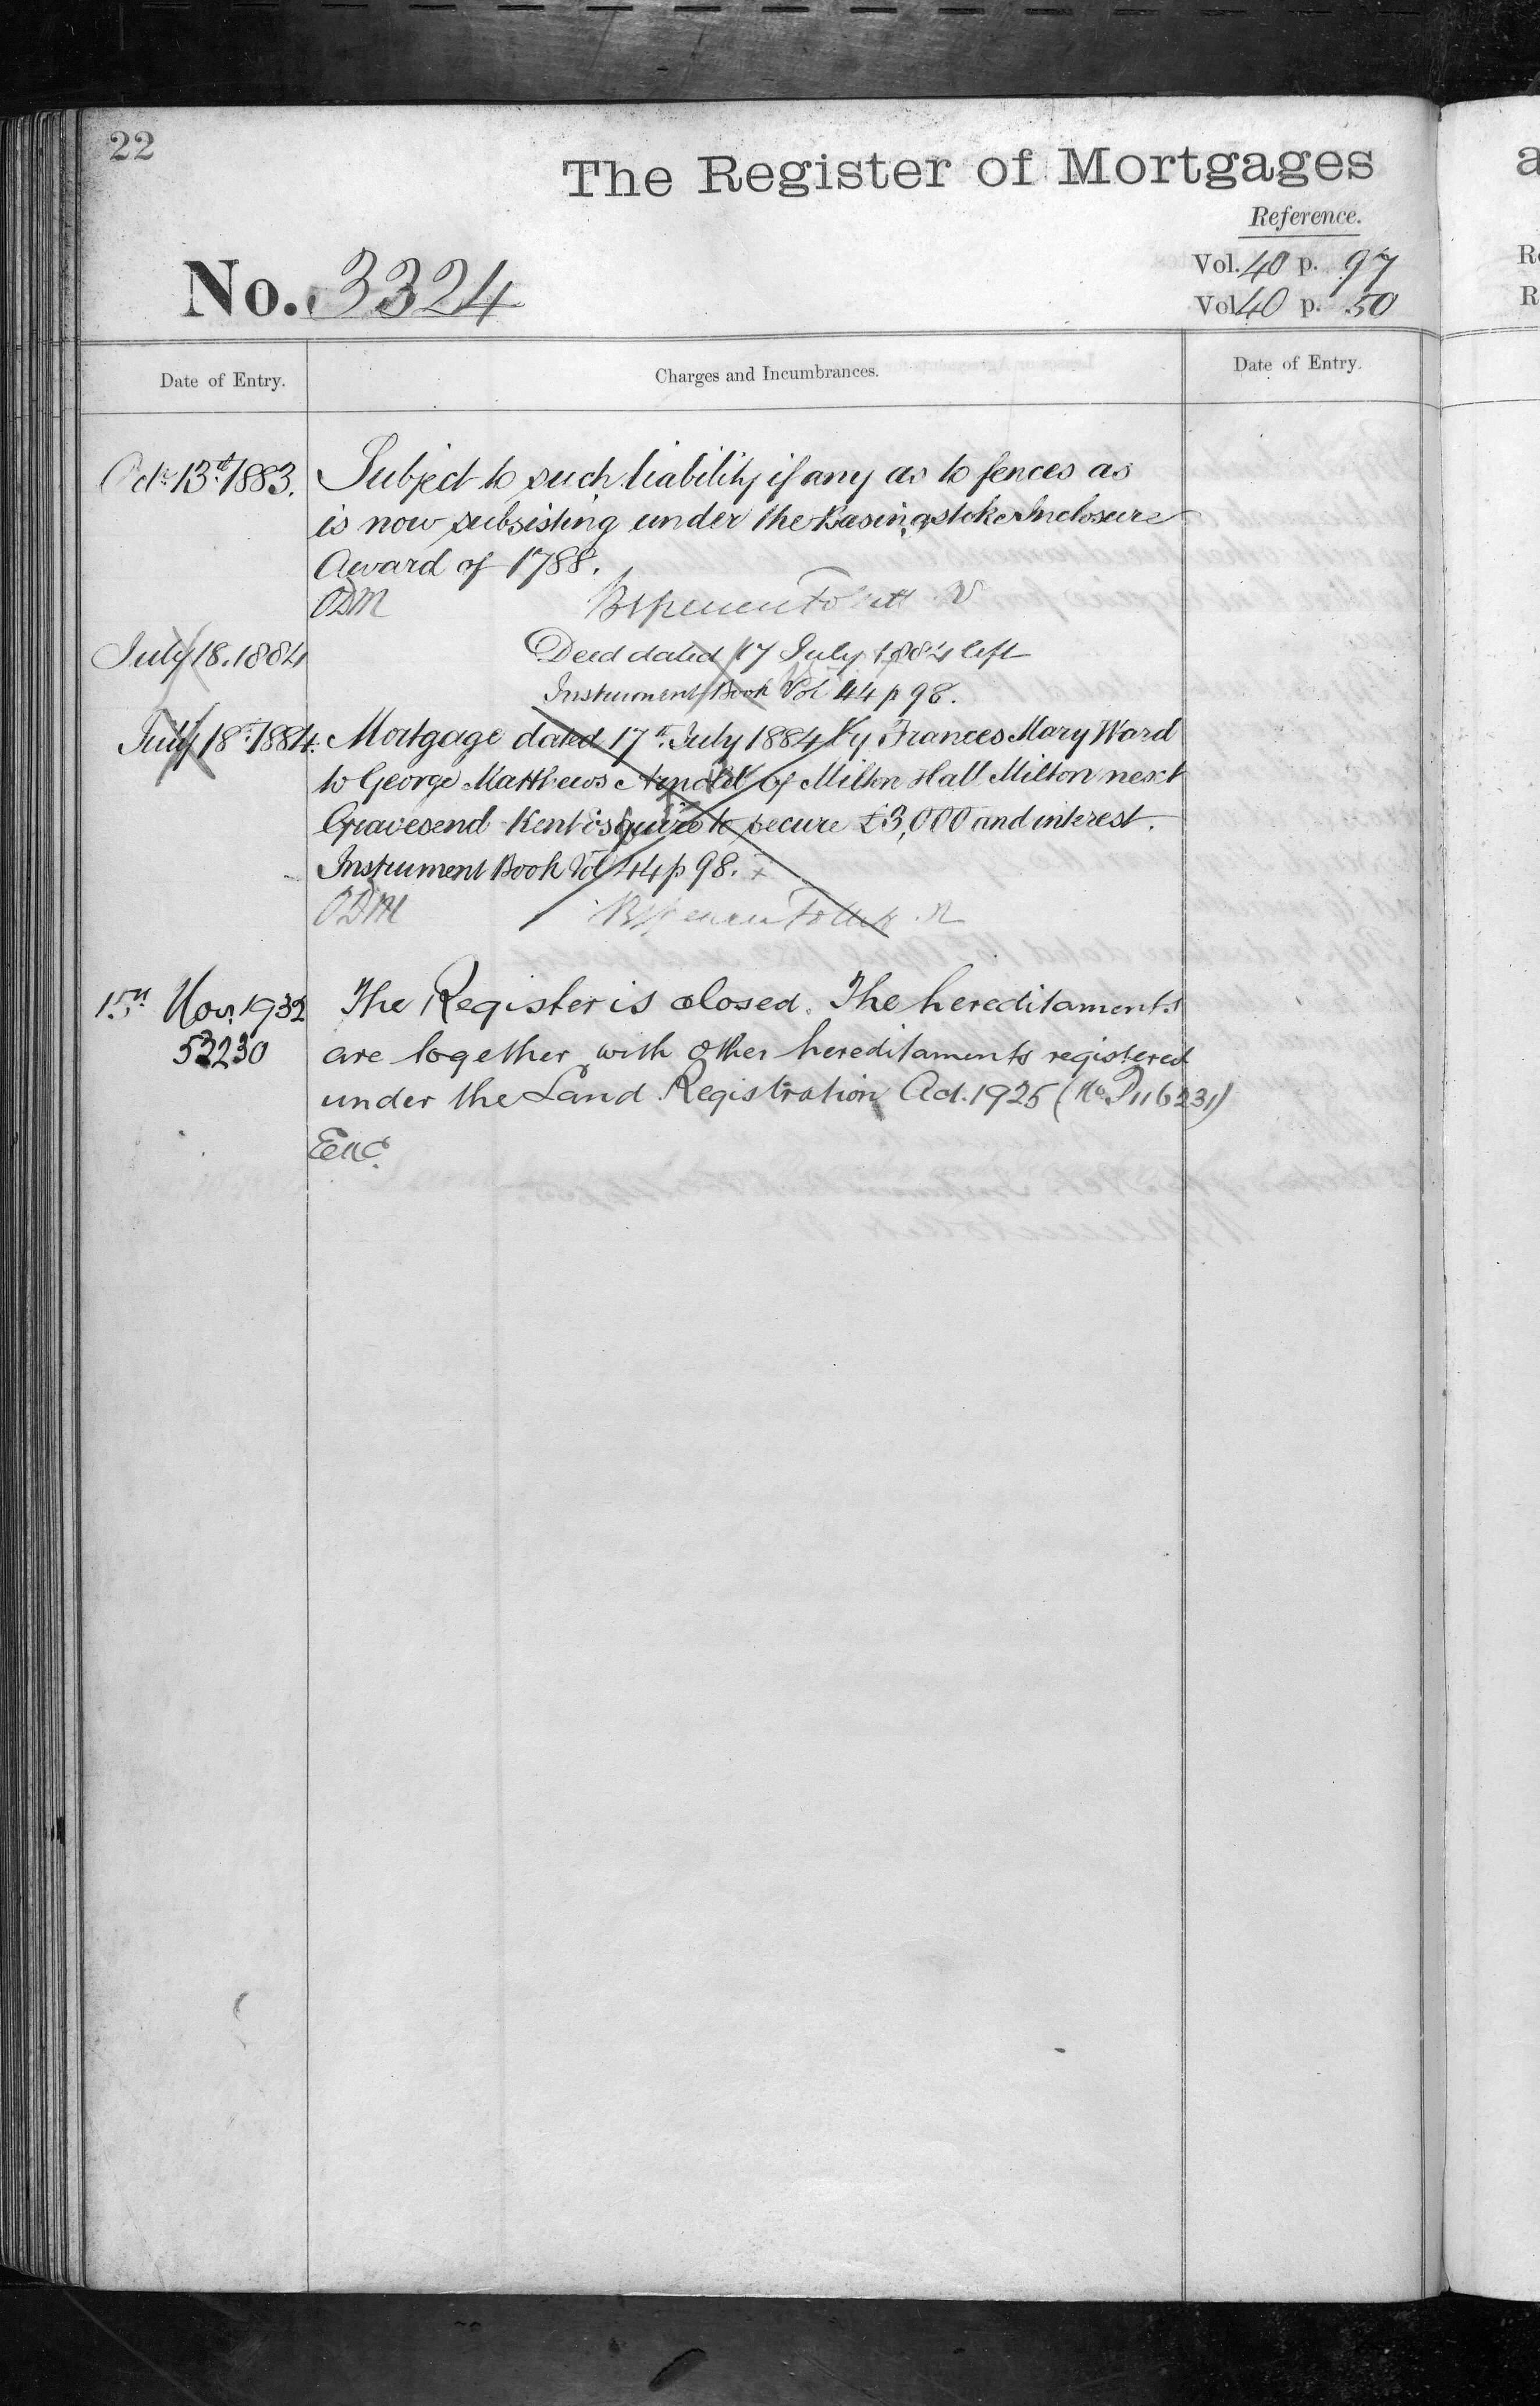 22
The Register of Mortgages
Reference.
No. 3324
Vol. 40 p. 97
Vol 40 p. 50
Date of Entry.
Charges and Incumbrances.
Date of Entry.
Octr. 13th 1883.
Subject to such liability if any as to fences as
is now subsisting under the Basingstoke Inclosure
Award of 1788.
ODM
July 18. 1884
Deed dated 17 July 1884 left
Instrument Book Vol 44 p 98.
July 18th 1884.
Mortgage dated 17th July 1884 by Frances Mary Ward
to George Matthews Arnold of Milton Hall Milton next
Gravesend Kent Esquire to secure £3,000 and interest.
Instrument Book Vol 44 p 98.
ODM
15th Nov. 1932
The Register is closed. The hereditaments
53230
are together with other hereditaments registered
under the Land Registration Act. 1925 (No. P116231)